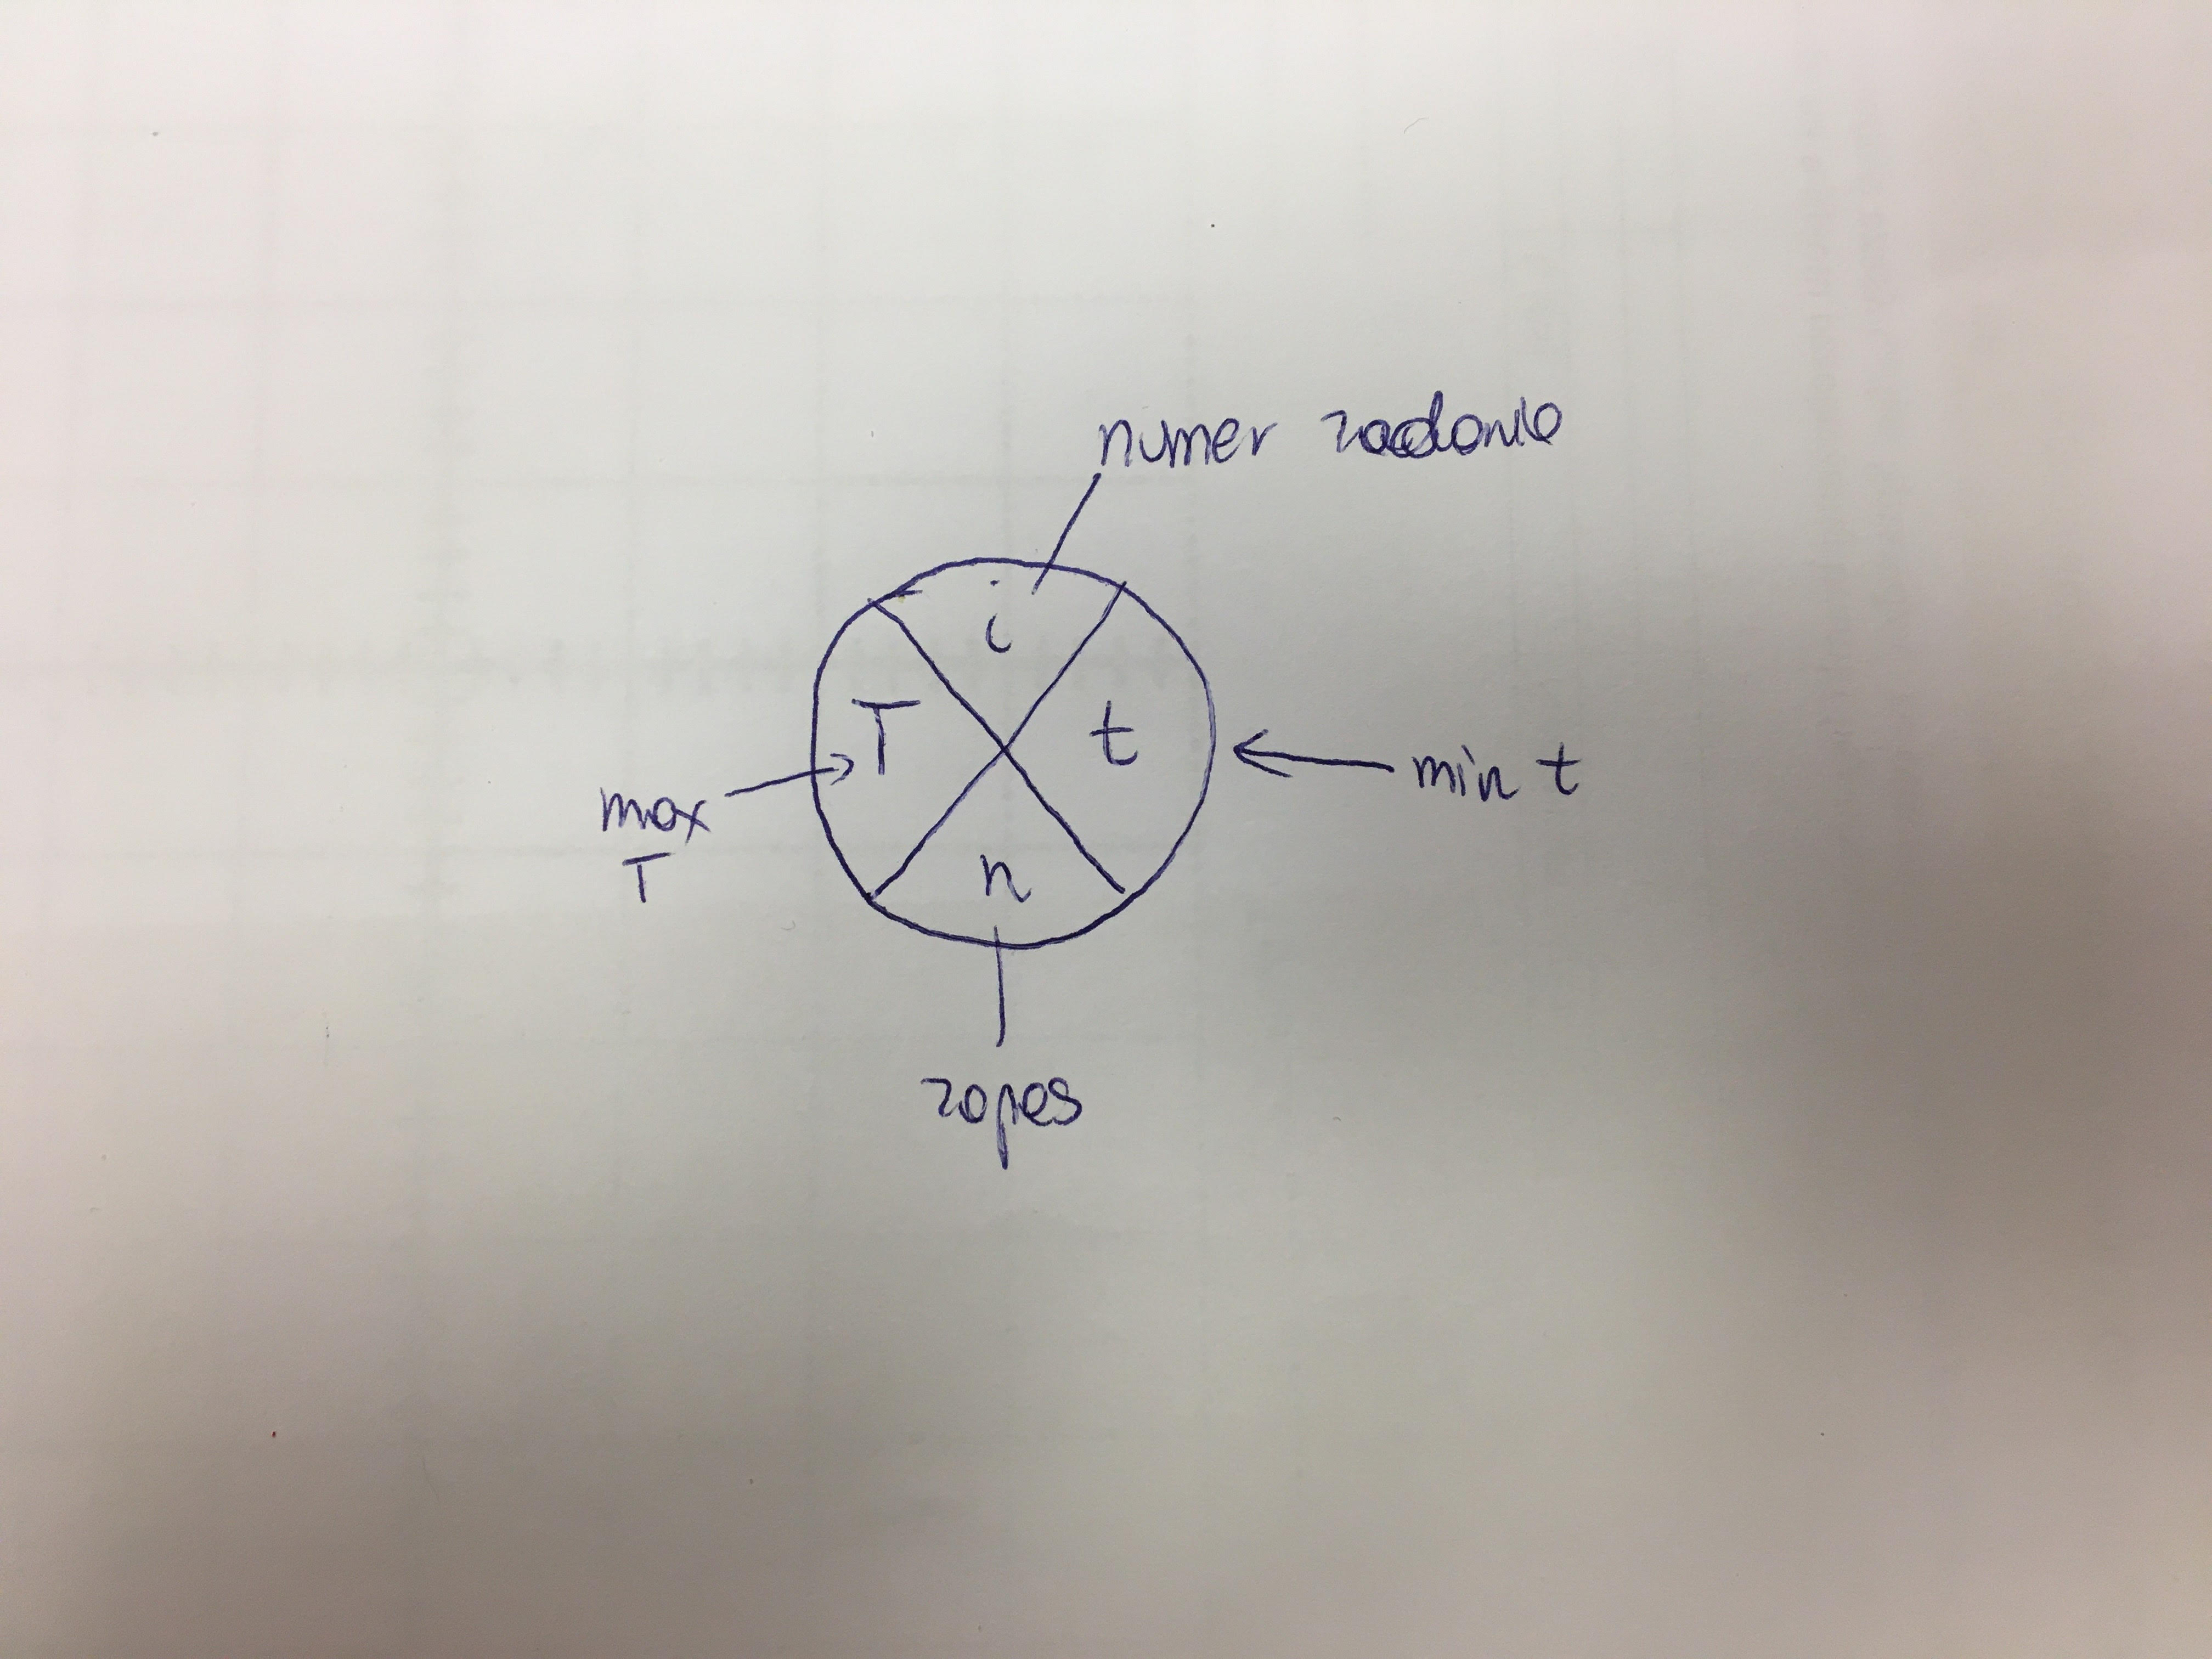 numer zadania
i
T
t
max
T
min t
n
zapas